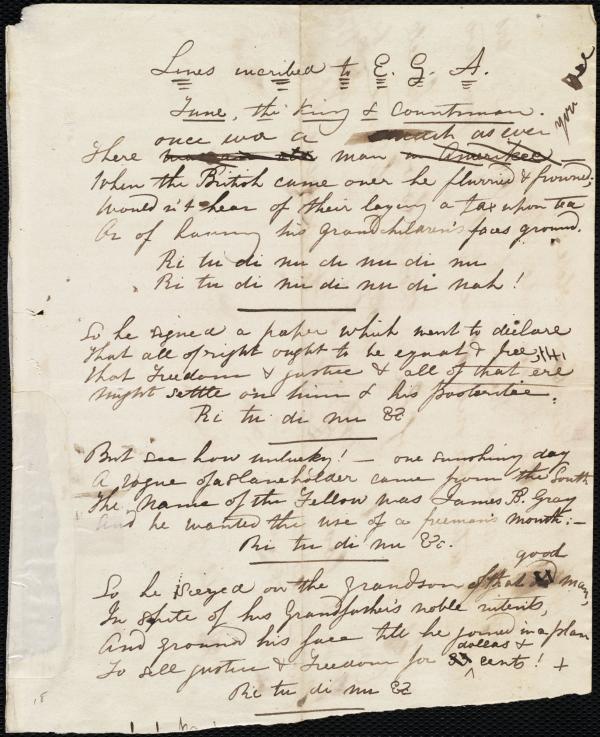 Lines incribed to E. G. A.
Tune, the King & Countryman.
you see
once wos a
There man in Amerikee
When the British came over he flurried & frowned;
Would n't hear of their laying a tax upon tea
Or of having his grandchildren's faces ground.
Ri tu di nu di nu di nu
Ri tu di nu di nu di nah!
So he signed a paper which went to declare
That all of right ought to be equal & free
That Freedom & justice & all of that ere
Might settle on him & his posteritee.
Ri tu di nu &c
But see how unlucky! - one sunshiny day
A rogue of a slaveholder came from the South
The name of the Fellow was James B. Gray
And he wanted the use of a freeman's mouth:-
Ri tu di nu &c.
good
So he siezed on the grandson of that man,
In spite of his Grandfather's noble intents,
And ground his face till he joined in a plan
dollars &
To sell justice & Freedom for cents! +
Ri tu di nu &c